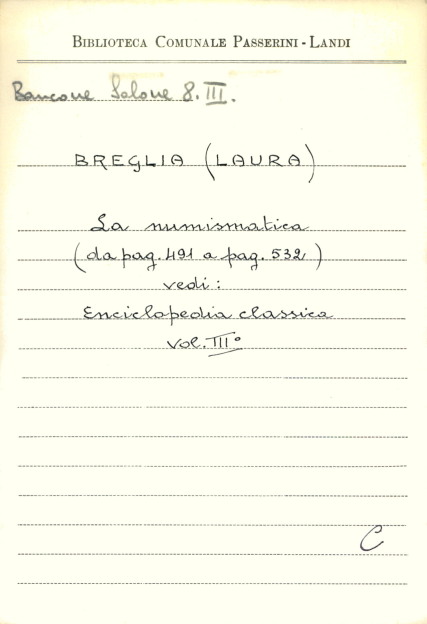 BIBLIOTECA COMUNALE PASSERINI - LANDI
Bancone Salone 8. III.
BREGLIA (LAURA)
La numismatica
(da pag. 491 a pag. 532)
vedi:
Enciclopedia classica
vol. III°
C